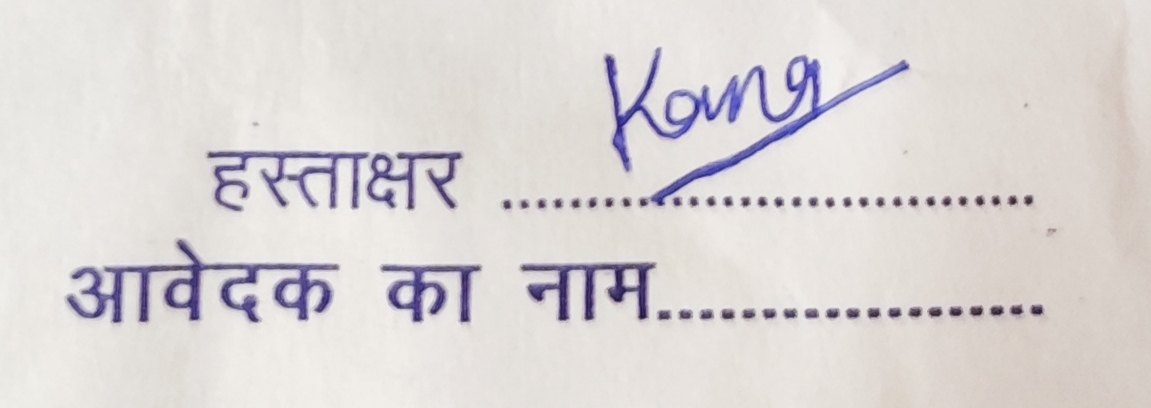 हस्ताक्षर ....................................
आवेदक का नाम....................